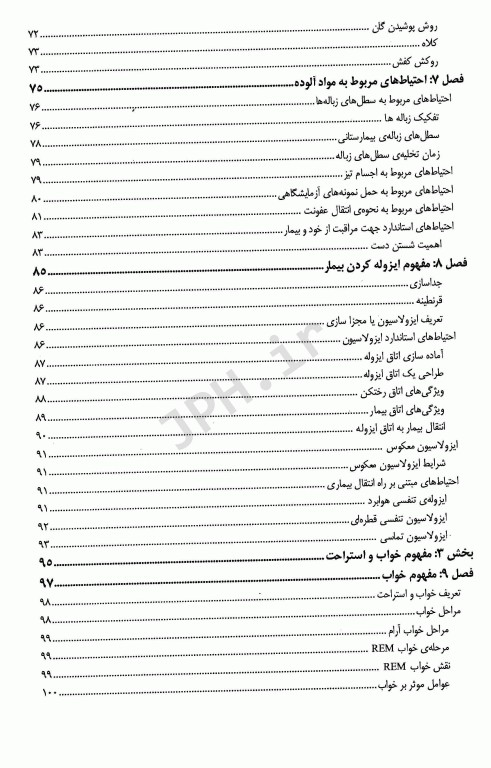 روش پوشیدن گان ........ ۷۲
کلاه ........ ۷۳
روکش کفش ........ ۷۳
فصل ۷: احتیاط‌های مربوط به مواد آلوده ........ ۷۵
احتیاط‌های مربوط به سطل‌های زباله‌ها ........ ۷۶
تفکیک زباله ها ........ ۷۶
سطل‌های زباله‌ی بیمارستانی ........ ۷۸
زمان تخلیه‌ی سطل‌های زباله ........ ۷۹
احتیاط‌های مربوط به اجسام تیز ........ ۷۹
احتیاط‌های مربوط به حمل نمونه‌های آزمایشگاهی ........ ۸۰
احتیاط‌های مربوط به نحوه‌ی انتقال عفونت ........ ۸۱
احتیاط‌های استاندارد جهت مراقبت از خود و بیمار ........ ۸۳
اهمیت شستن دست ........ ۸۳
فصل ۸: مفهوم ایزوله کردن بیمار ........ ۸۵
جداسازی ........ ۸۶
قرنطینه ........ ۸۶
تعریف ایزولاسیون یا مجزا سازی ........ ۸۶
احتیاط‌های استاندارد ایزولاسیون ........ ۸۶
آماده سازی اتاق ایزوله ........ ۸۷
طراحی یک اتاق ایزوله ........ ۸۷
ویژگی‌های اتاق رختکن ........ ۸۸
ویژگی‌های اتاق بیمار ........ ۸۹
انتقال بیمار به اتاق ایزوله ........ ۹۰
ایزولاسیون معکوس ........ ۹۱
شرایط ایزولاسیون معکوس ........ ۹۱
احتیاط‌های مبتنی بر راه انتقال بیماری ........ ۹۱
ایزوله‌ی تنفسی هوابرد ........ ۹۱
ایزولاسیون تنفسی قطره‌ای ........ ۹۲
ایزولاسیون تماسی ........ ۹۳
بخش ۳: مفهوم خواب و استراحت ........ ۹۵
فصل ۹: مفهوم خواب ........ ۹۷
تعریف خواب و استراحت ........ ۹۸
مراحل خواب ........ ۹۸
مراحل خواب آرام ........ ۹۹
مرحله‌ی خواب REM ........ ۹۹
نقش خواب REM ........ ۹۹
عوامل موثر بر خواب ........ ۱۰۰
JPH.ir